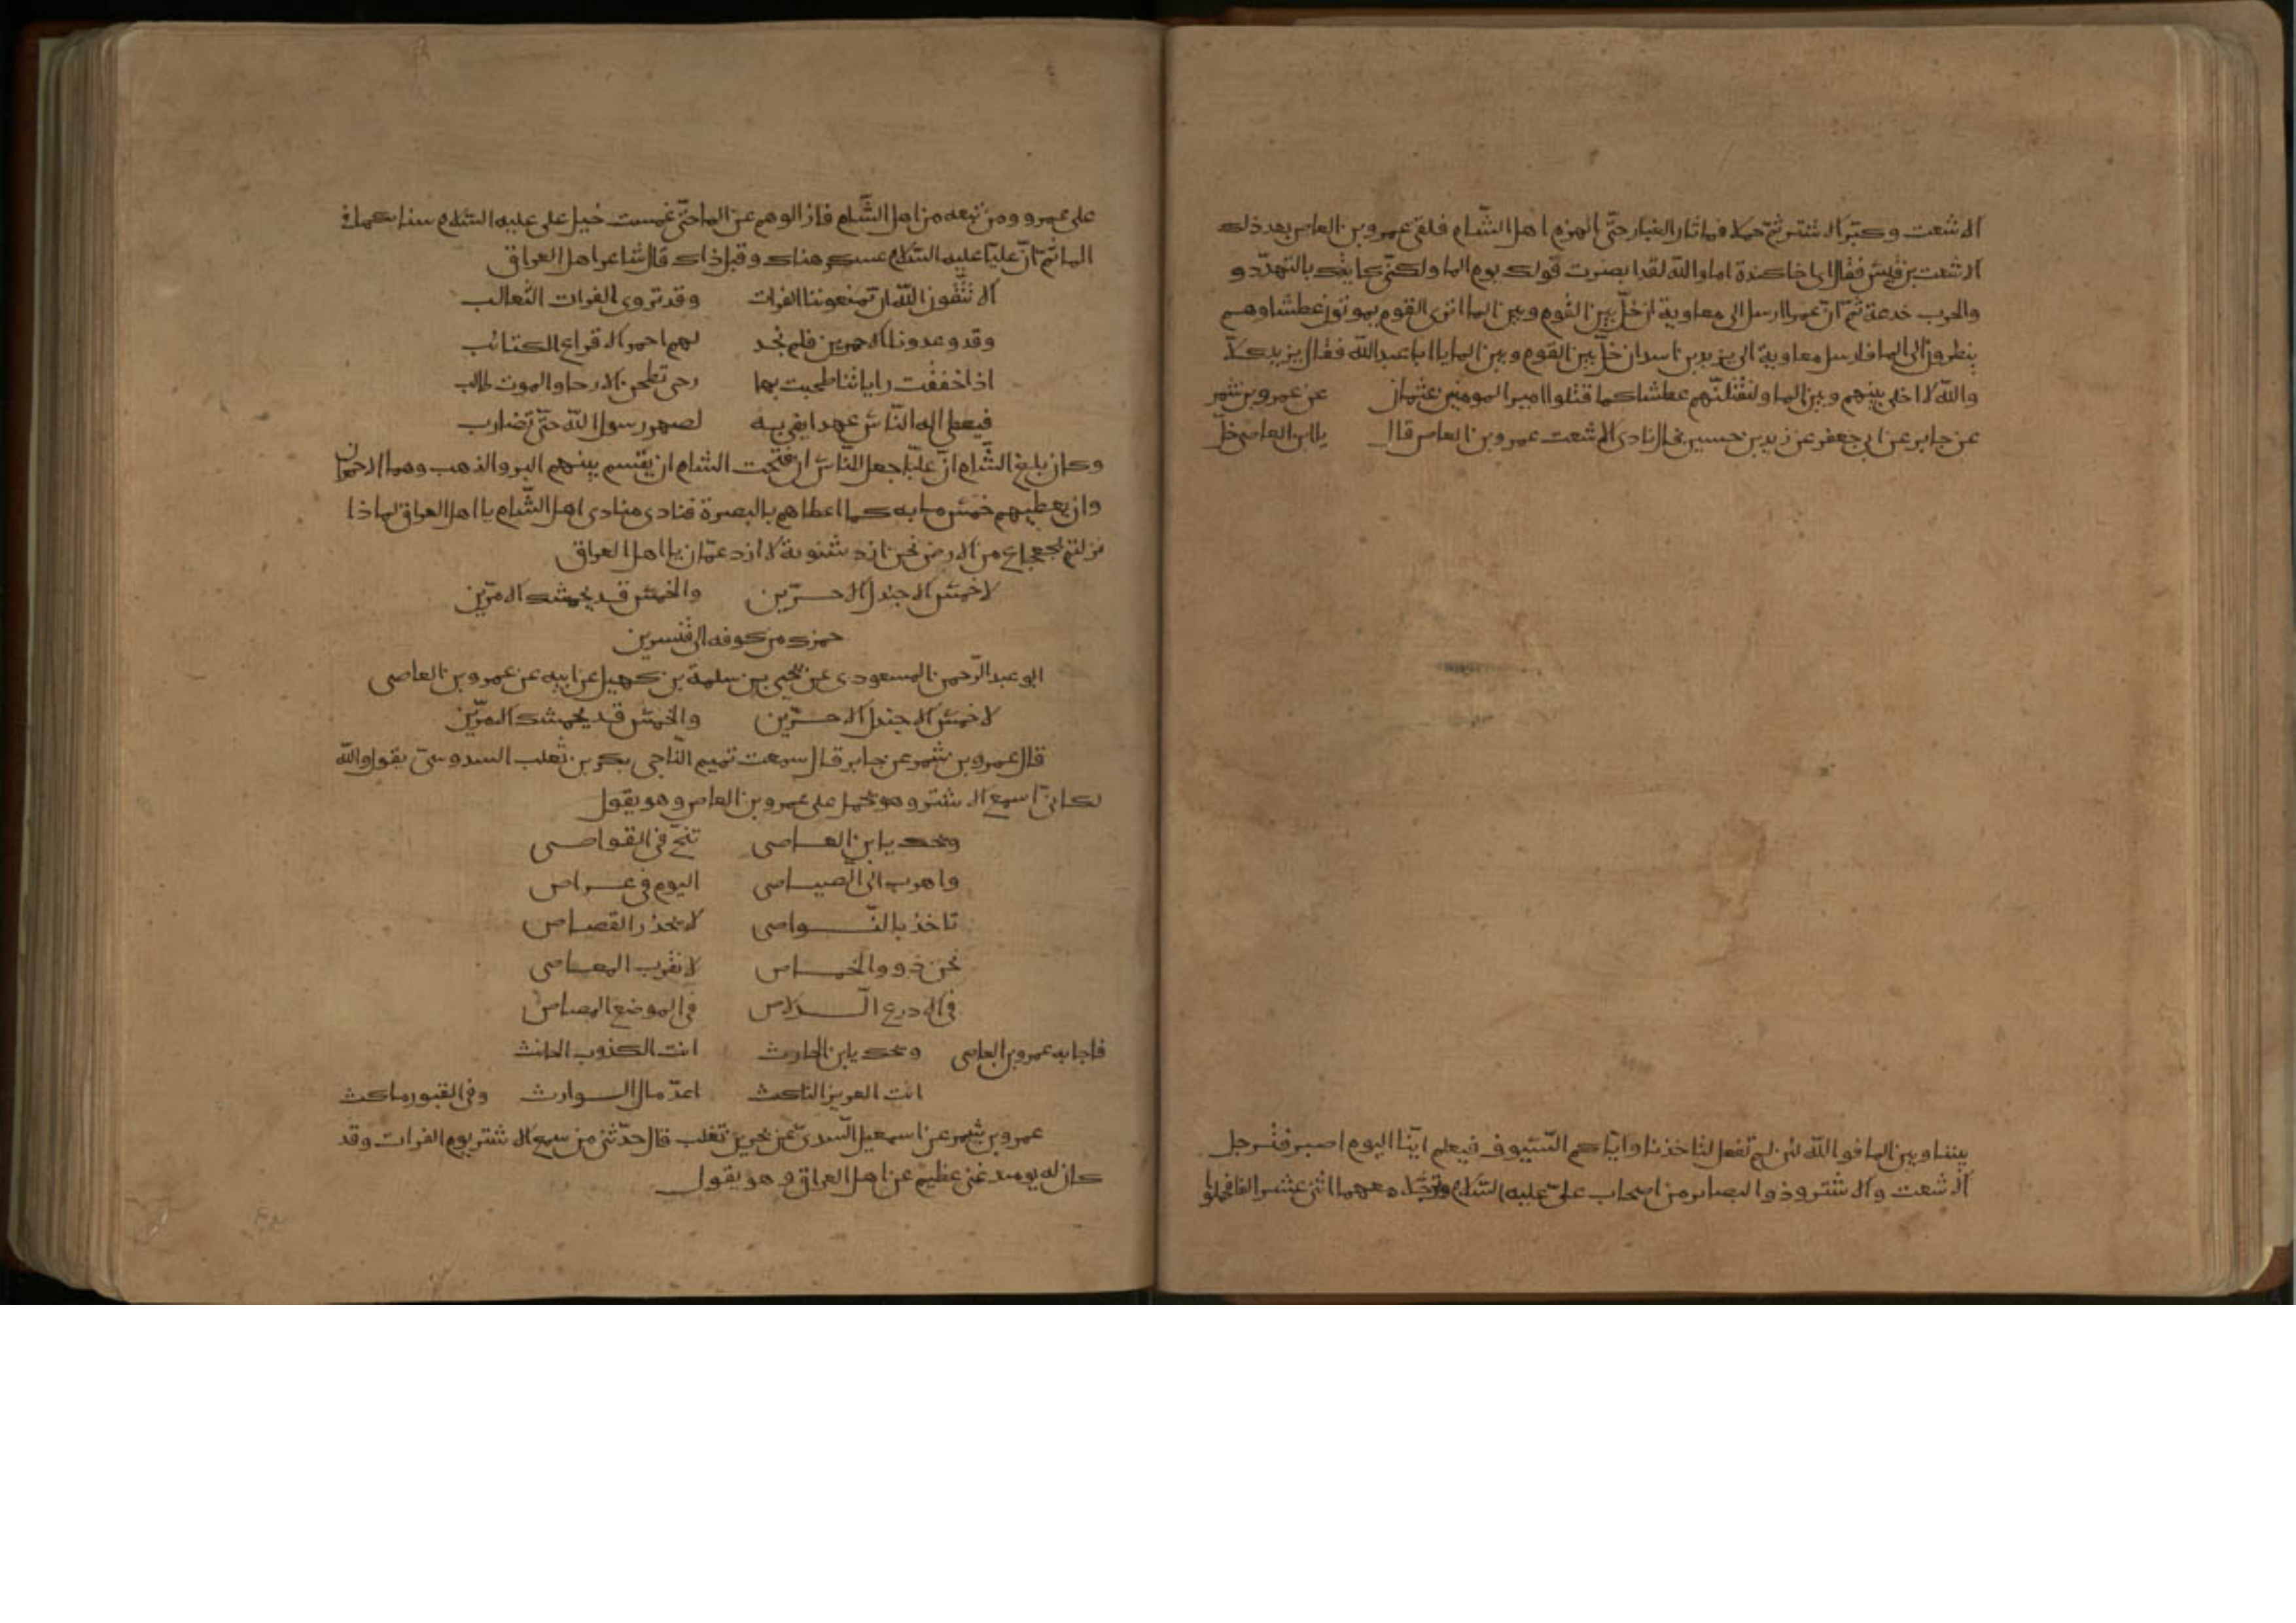 الاشعث وكبّر الاشتر ثمّ حملا فما ثار الغبار حتّى انهزم اهل الشّام فلقى عمرو بن العاص بعد ذلك
الاشعث بن قيس فقال اى اخا كندة اما والله لقد ابصرت قولك يوم الما ولكنّى كايدك بالتهدّد و
والحرب خدعة ثمّ انّ عمرا ارسل الى معاوية ان خلّ بين القوم وبين الما اترى القوم يموتون عطشا وهم
ينظرون الى الما فارسل معاوية الى يزيد بن اسد ان خلّ بين القوم وبين الما يا ابا عبد الله فقال يزيد كلّا
والله لا اخلى بينهم وبين الما ولنقتلنّهم عطشا كما قتلوا امير المومنين عثمان عن عمرو بن شمر
عن جابر عن ابى جعفر عن زيد بن حسين قال نادى الاشعث عمرو بن العاص قال يا ابن العاص خلّ
بيننا وبين الما فو الله لئن لم تفعل لتاخذنا وايّاكم السّيوف فيعلم ايّنا اليوم اصبر فترجل
الاشعث والاشتر وذوو البصاير من اصحاب علىّ عليه السّلام وترجّل معهما اثنى عشر الفا فحملوا
على عمرو ومن تبعه من اهل الشّام فازالوهم عن الما حتّى غمست خيل على عليه السّلام سنابكها فى
الما ثم انّ عليّا عليه السّلام عسكر هناك وقبل ذاك قال شاعر اهل العراق
الا تتّقون الله ان تمنعوننا الفرات وقد تروى الفرات الثّعالب
وقد وعدونا الاحمرين فلم نجد لهم احمر الا قراع الكتائب
اذا خفقت راياتنا طحنت بها رحى تطحن الارحا والموت طالب
فيعطى اله النّاس عهدا يفى به لصهر رسول الله حتّى تضارب
وكان بلغ الشّام انّ عليّا جعل للنّاس ان فتحت الشام ان يقسم بينهم البر والذهب وهما الاحمران
وان يعطيهم خمس مايه كما اعطاهم بالبصرة فنادى منادى اهل الشّام يا اهل العراق لماذا
نزلتم بجعجاع من الارض نحن ازد شنوية لا ازد عمّان يا اهل العراق
لا خمس الا جندل الاحرّين والخمس قد يجشمك الامرّين
حمزك من كوفه الى قنسرين
ابو عبد الرّحمن المسعودى عن يحيى بن سلمة بن كهيل عن ابيه عن عمرو بن العاصى
لا خمس الا جندل الاحرّين والخمس قد يجشمك الامرّين
قال عمرو بن شمر عن جابر قال سمعت تميم النّاجى بكر بن تغلب السدوسىّ يقول والله
لكانىّ اسمع الاشتر وهو يحمل على عمرو بن العاص وهو يقول
ويحك يا ابن العاصى تنحّ فى القواصى
واهرب الى الصياصى اليوم فى عراص
تاخذ بالنّواصى لا تحذر القصاص
نحن ذوو الخماص لا نقرب المعاصى
فى الادرع الدّلاص فى الموضع المصاص
فاجابه عمرو بن العاصى ويحك يا ابن الحارث انت الكذوب الحانث
انت العزيز الناكث اعدّ مال الوارث وفى القبور ماكث
عمرو بن شمر عن اسمعيل السّدى عن بكر بن تغلب قال حدّثنى من سمع الاشتر يوم الفرات وقد
كان له يوميد غنى عظيم عن اهل العراق وهو يقول